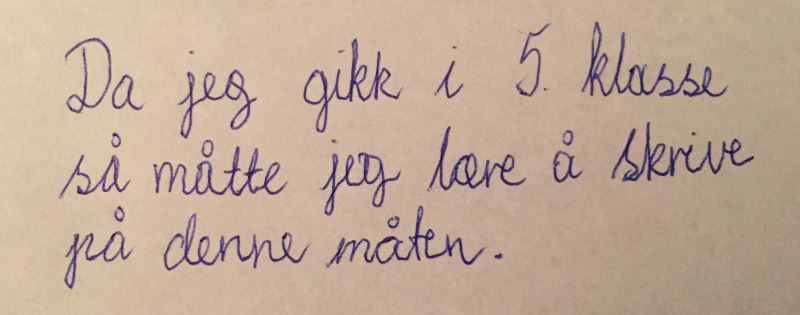 Da jeg gikk i 5. klasse
så måtte jeg lære å skrive
på denne måten.